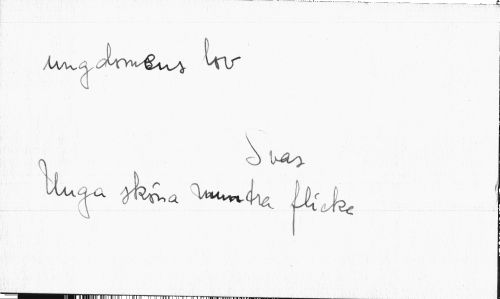 ungdomens lov
Svas
Unga sköna muntra flicka